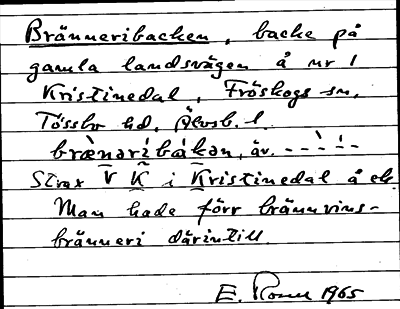 Bränneribacken, backe på
gamla landsvägen å nr 1
Kristinedal, Fröskogs sn,
Tössbo hd, Älvsb. l.
bræ̀nəríbákən, äv. - - - - -
Strax V K i Kristinedal å ek.
Man hade förr brännvins-
bränneri därintill.
E. Rosell 1965